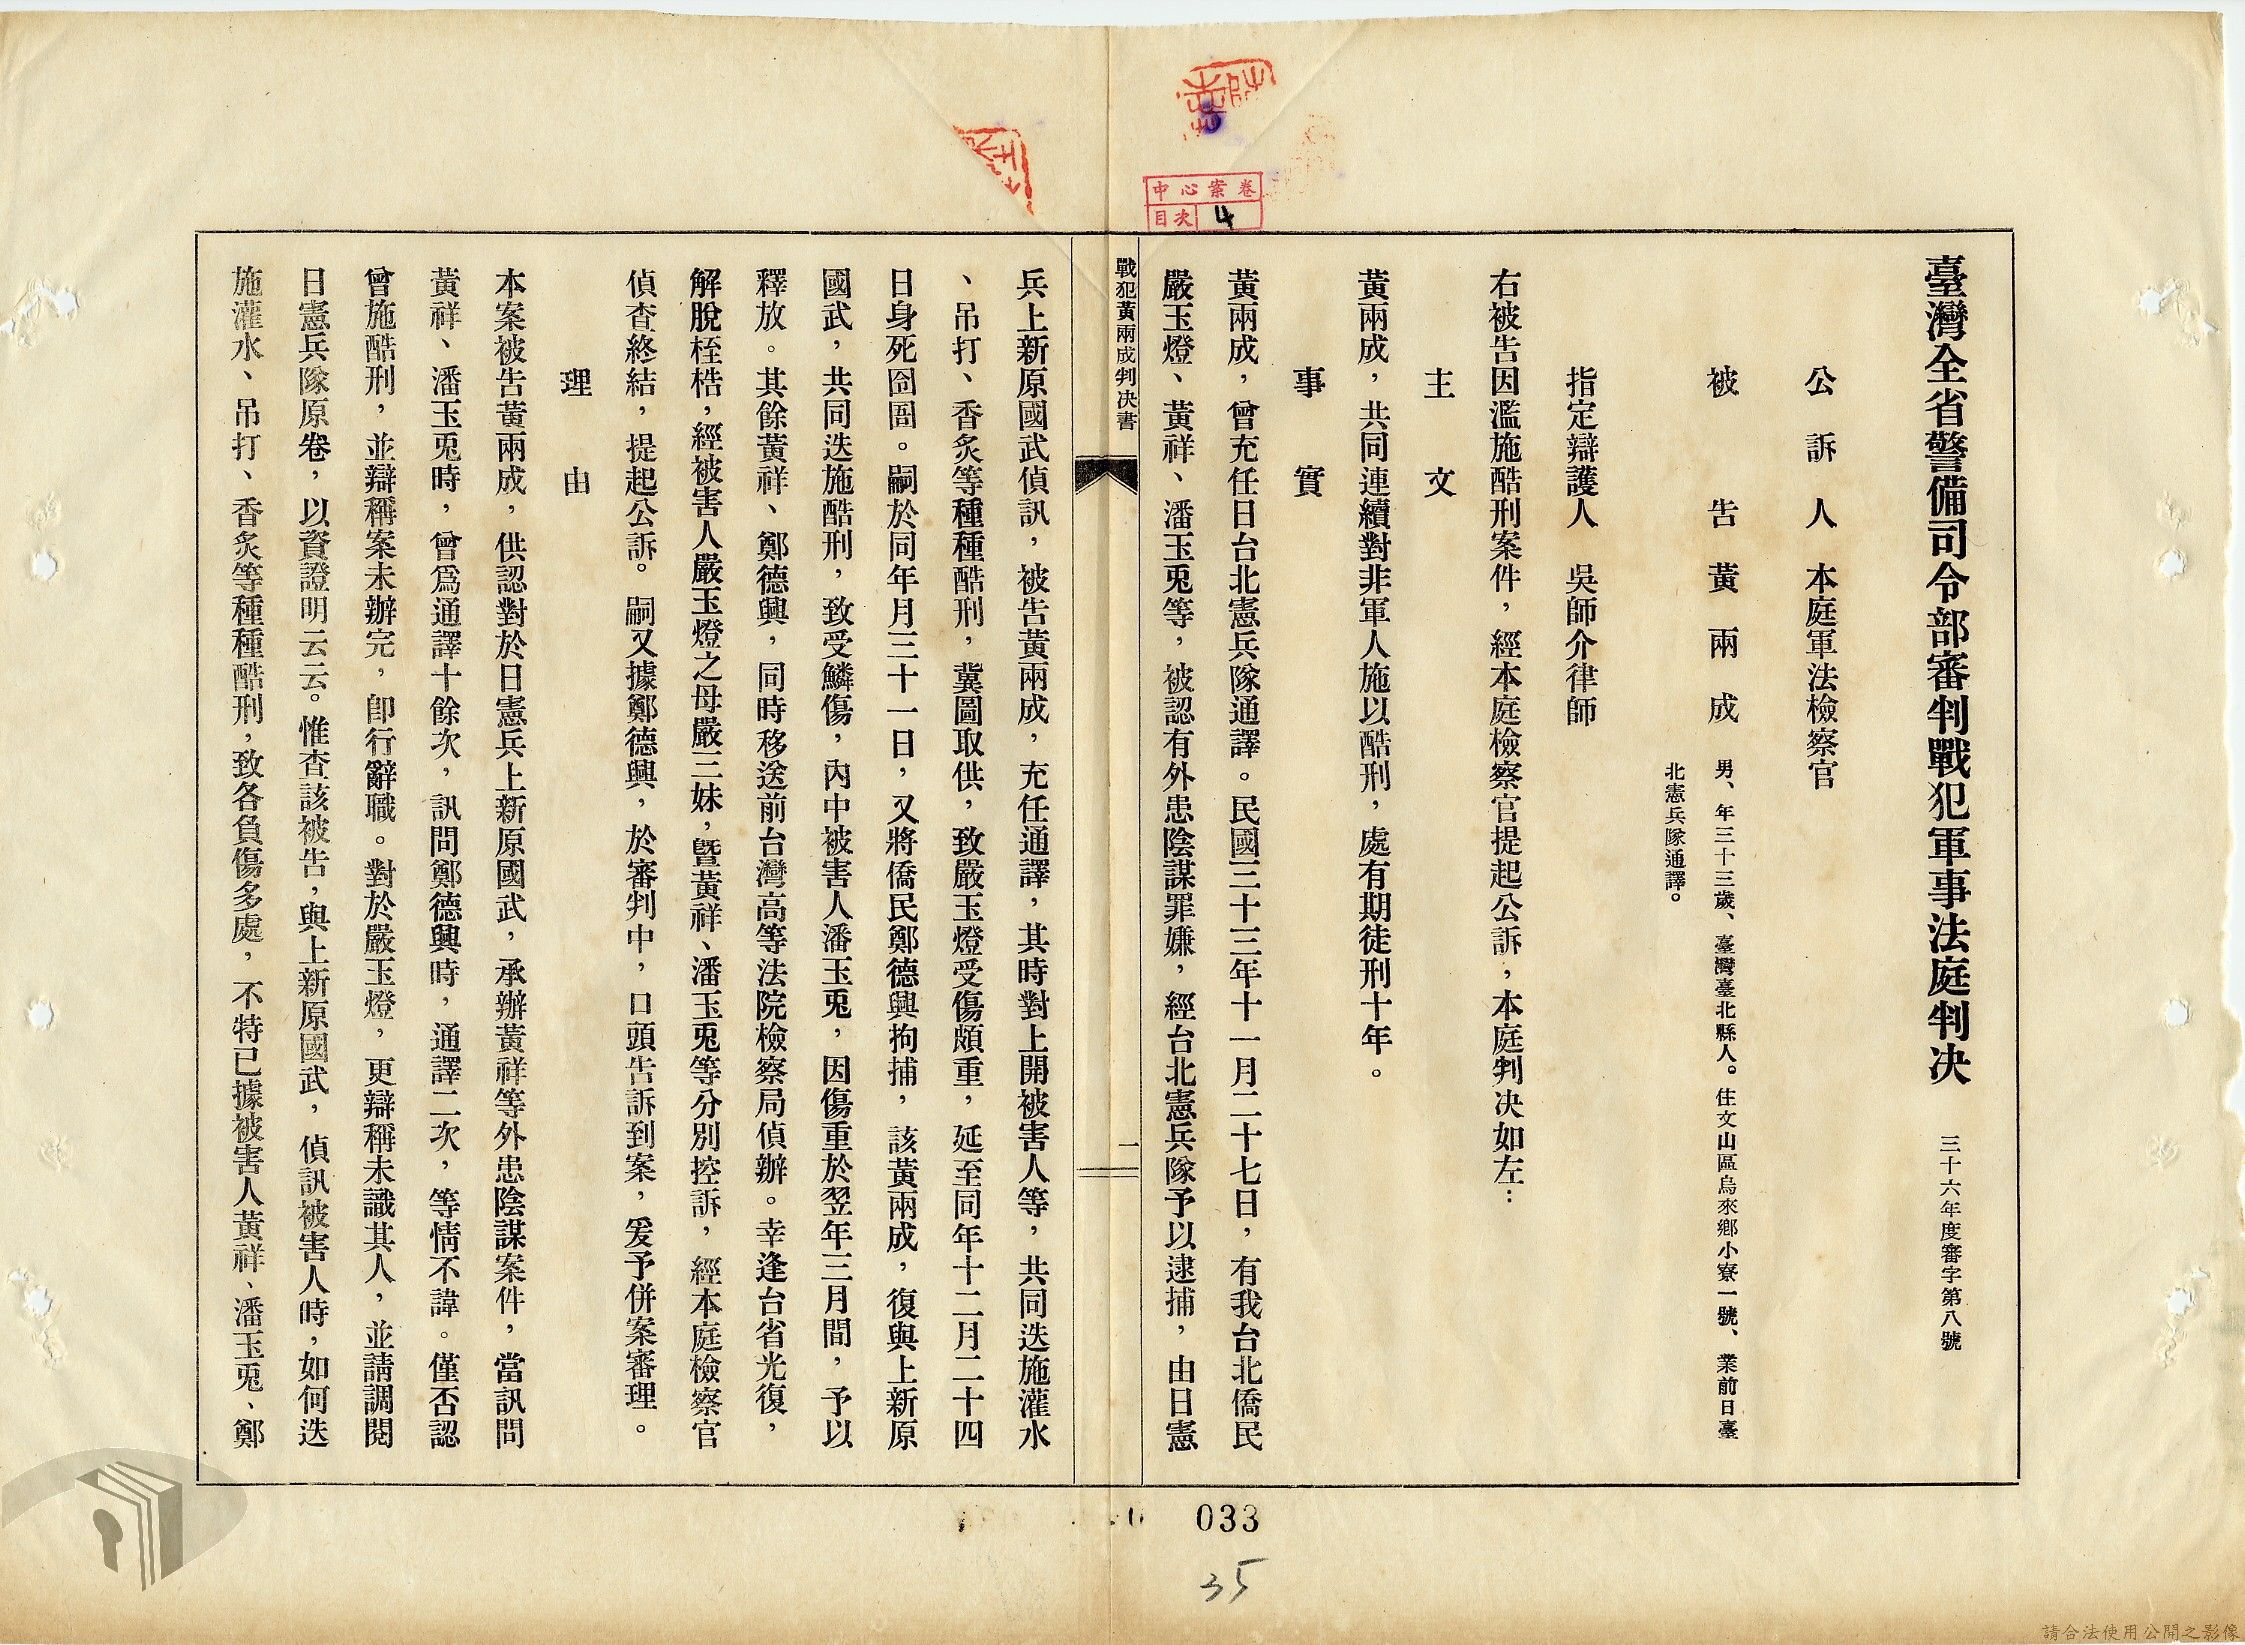 臺灣全省警備司令部審判戰犯軍事法庭判決 三十六年度審字第八號
公訴人 本庭軍法檢察官
被告 黃兩成 男、年三十三歲、臺灣臺北縣人。住文山區烏來鄉小寮一號、業前日臺
北憲兵隊通譯。
指定辯護人 吳師介律師
右被告因濫施酷刑案件，經本庭檢察官提起公訴，本庭判決如左：
主文
黃兩成，共同連續對非軍人施以酷刑，處有期徒刑十年。
事實
黃兩成，曾充任日台北憲兵隊通譯。民國三十三年十一月二十七日，有我台北僑民
嚴玉燈、黃祥、潘玉兎等，被認有外患陰謀罪嫌，經台北憲兵隊予以逮捕，由日憲
戰犯黃兩成判決書
一
兵上新原國武偵訊，被告黃兩成，充任通譯，其時對上開被害人等，共同迭施灌水
、吊打、香炙等種種酷刑，冀圖取供，致嚴玉燈受傷頗重，延至同年十二月二十四
日身死囹圄。嗣於同年月三十一日，又將僑民鄭德興拘捕，該黃兩成，復與上新原
國武，共同迭施酷刑，致受鱗傷，內中被害人潘玉兎，因傷重於翌年三月間，予以
釋放。其餘黃祥、鄭德興，同時移送前台灣高等法院檢察局偵辦。幸逢台省光復，
解脫桎梏，經被害人嚴玉燈之母嚴三妹，曁黃祥、潘玉兎等分別控訴，經本庭檢察官
偵查終結，提起公訴。嗣又據鄭德興，於審判中，口頭告訴到案，爰予併案審理。
理由
本案被告黃兩成，供認對於日憲兵上新原國武，承辦黃祥等外患陰謀案件，當訊問
黃祥、潘玉兎時，曾爲通譯十餘次，訊問鄭德興時，通譯二次，等情不諱。僅否認
曾施酷刑，並辯稱案未辦完，卽行辭職。對於嚴玉燈，更辯稱未識其人，並請調閱
日憲兵隊原卷，以資證明云云。惟查該被告，與上新原國武，偵訊被害人時，如何迭
施灌水、吊打、香炙等種種酷刑，致各負傷多處，不特已據被害人黃祥、潘玉兎、鄭
中心案卷
目次 4
033
35
請合法使用公開之影像